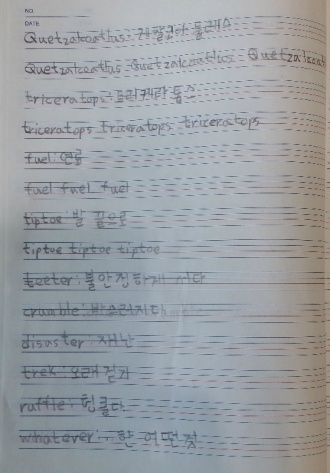 NO.
DATE
Quetzalcoatlus:
Quetzalcoatlus Quetzalcoatlus Quetzalcoat
triceratops 트리케라 톱스
triceratops triceratops triceratops
fuel 연료
fuel fuel fuel
tiptoe 발 끝으로
tiptoe tiptoe tiptoe
teeter: 불안정하게 서다
crumble: 바스러지다
disaster: 재난
trek: 오래 걷기
ruffle: 헝클다
whatever: 한 어떤 것